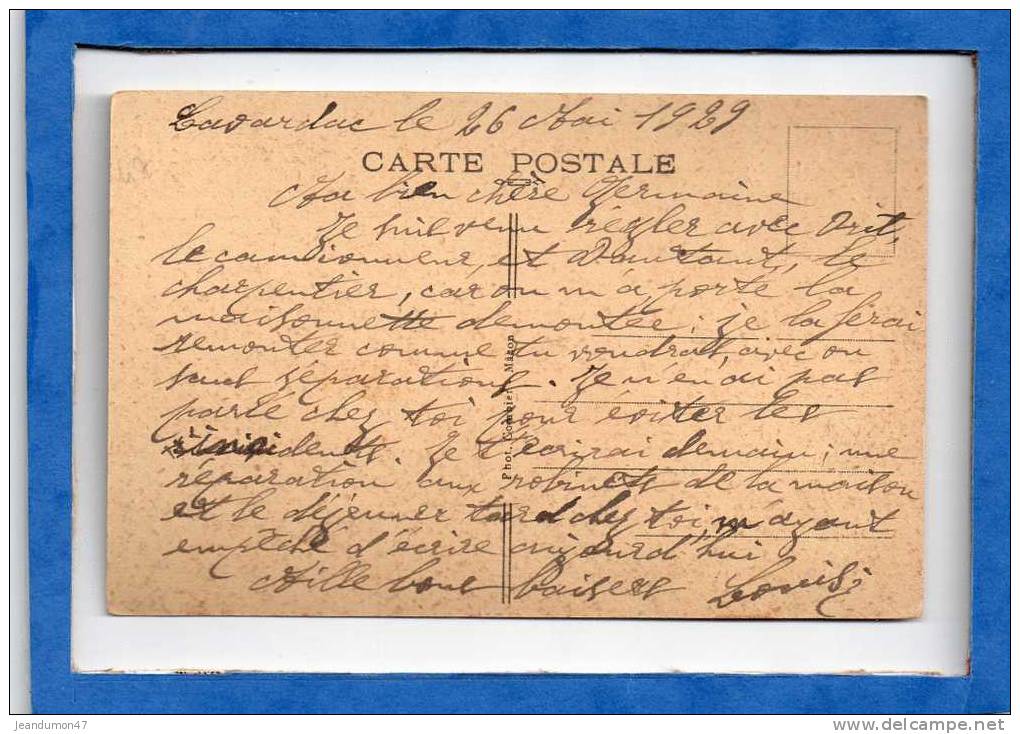 Lavardac le 26 Mai 1929
CARTE POSTALE
Ma bien chère Germaine
Je suis venu regler avec
le camionneur, et Dautant, le
charpentier, car on m'a porté la
maisonnette demontée; je la ferai
remonter comme tu voudras, avec ou
sans réparations. Je n'en ai pas
parlé chez toi pour éviter les
incidents. Je t'écrirai demain; une
réparation aux robinets de la maison
et le déjeuner tard chez toi, m'ayant
empêché d'écrire aujourd'hui
Mille bons baisers Louis
Phot. Combier Mâcon
jeandumon47
http://www.delcampe.net